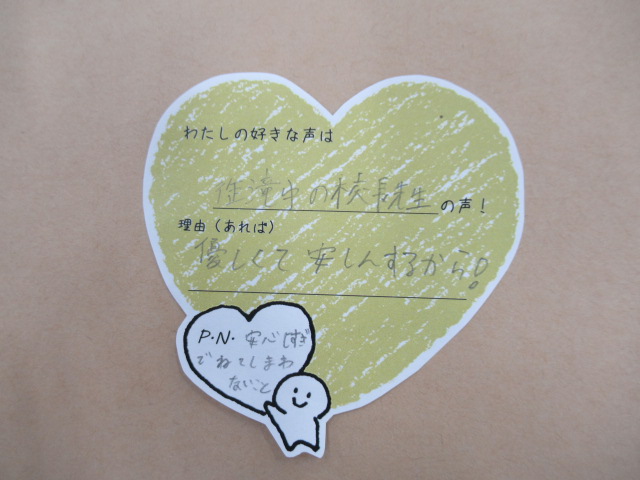 わたしの好きな声は
佳滝中の校長先生の声!
理由(あれば)
優しくて安しんするから!
P.N. 安心しすぎ
でねてしまわ
ないこと